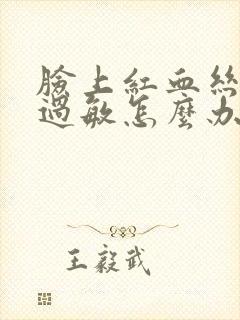 臉上紅血絲
過敏怎麼办
王毅武